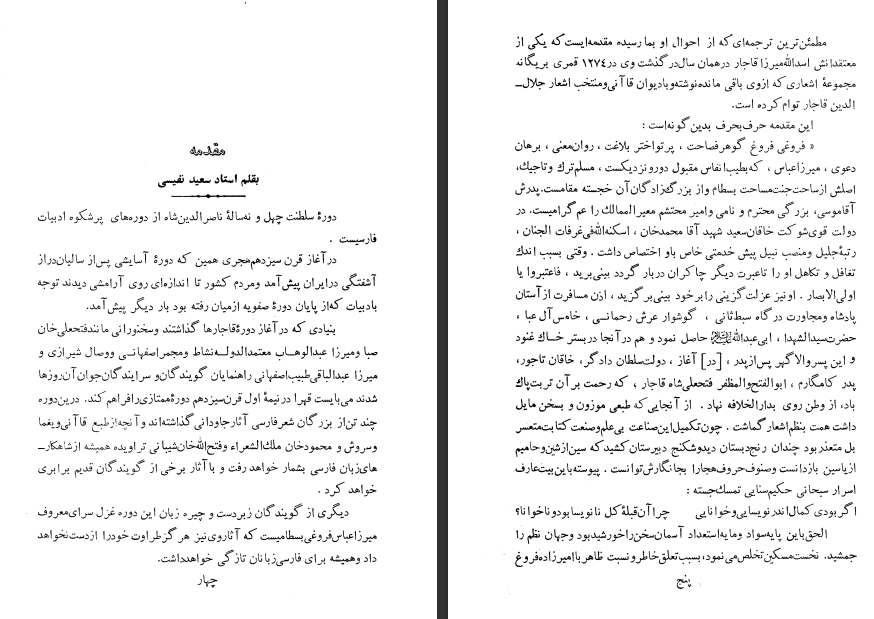 مقدمه
بقلم استاد سعید نفیسی
دورهٔ سلطنت چهل و نه‌سالهٔ ناصرالدین‌شاه از دوره‌های پرشکوه ادبیات
فارسیست .
در آغاز قرن سیزدهم‌هجری همین که دورهٔ آسایشی پس‌از سالیان‌دراز
آشفتگی درایران پیش‌آمد ومردم کشور تا اندازه‌ای روی آرامشی دیدند توجه
بادبیات که‌از پایان دورهٔ صفویه ازمیان رفته بود بار دیگر پیش‌آمد.
بنیادی که در آغاز دورهٔ قاجارها گذاشتند وسخنورانی مانندفتحعلی‌خان
صبا ومیرزا عبدالوهاب معتمدالدوله نشاط ومجمراصفهانی ووصال شیرازی و
میرزا عبدالباقی‌طبیب‌اصفهانی راهنمایان گویندگان‌و سرایندگان‌جوان آن‌روزها
شدند می‌بایست قهرا در نیمهٔ اول قرن‌سیزدهم دورهٔ‌ممتازی‌رافراهم‌کند. درین‌دوره
چند تن‌از بزرگان شعرفارسی آثارجاودانی‌گذاشته‌اند و آنچه‌ازطبع قاآنی‌ویغما
وسروش و محمودخان ملك‌الشعراء وفتح‌الله‌خان‌شیبانی تراویده همیشه ازشاهکار-
های‌زبان فارسی بشمار خواهد رفت و با آثار برخی از گویندگان قدیم برابری
خواهد کرد .
دیگری از گویندگان زبردست و چیره زبان این دوره غزل سرای‌معروف
میرزاعباس‌فروغی‌بسطامیست که آثاروی‌نیز هرگزطراوت خودرا ازدست‌نخواهد
داد وهمیشه برای فارسی‌زبانان تازگی خواهدداشت.
چهار
مطمئن‌ترین ترجمه‌ای‌که از احوال او بما رسیده مقدمه‌ایست‌که یکی از
معتقدانش اسدالله‌میرزا قاجار درهمان سال‌درگذشت وی در ۱۲۷۴ قمری بریگانه
مجموعهٔ اشعاری که ازوی باقی مانده‌نوشته‌وبادیوان قاآنی‌ومنتخب اشعار جلال-
الدین قاجار توام کرده است.
این مقدمه حرف‌بحرف بدین گونه‌است :
« فروغی فروغ گوهرفصاحت ، پرتواختر بلاغت ، روان‌معنی ، برهان
دعوی ، میرزاعباس ، که‌بطیب‌انفاس مقبول دورونزدیکست، مسلم‌ترك وتاجیك،
اصلش ازساحت‌جنت‌مساحت بسطام واز بزرگ‌زادگان‌آن خجسته مقامست.پدرش
آقاموسی، بزرگی محترم و نامی وامیر محتشم معیرالممالك را عم گرامیست. در
دولت قوی‌شوکت خاقان‌سعید شهید آقا محمدخان ، اسکنه‌الله‌فی‌غرفات الجنان ،
رتبهٔ‌جلیل ومنصب نبیل پیش خدمتی خاص باو اختصاص داشت . وقتی بسبب اندك
تغافل و تکاهل او را تاعبرت دیگر چاکران دربار گردد بینی‌برید ، فاعتبروا یا
اولی‌الابصار . اونیز عزلت‌گزینی رابرخود بینی‌برگزید ، اذن مسافرت ازآستان
پادشاه ومجاورت درگاه سبط‌ثانی ، گوشوار عرش رحمانی ، خامس‌آل عبا ،
حضرت‌سیدالشهدا ، ابی‌عبدالله علیه‌السلام حاصل نمود و هم در آنجا دربستر خاك غنود
و این پسروالاگهر پس‌ازپدر ، [در] آغاز ، دولت‌سلطان دادگر، خاقان تاجور،
پدر کامگارم ، ابوالفتح‌والمظفر فتحعلی‌شاه قاجار ، که رحمت بر آن تربت‌پاك
باد، از وطن روی بدارالخلافه نهاد . از آنجایی‌که طبعی موزون و سخن مایل
داشت همت بنظم‌اشعارگماشت . چون‌تکمیل‌این‌صناعت بی‌علم‌وصنعت‌کتابت‌متعسر
بل متعذربود چندان رنج‌دبستان دیدوشکنج دبیرستان کشیدکه سین‌ازشین‌وحامیم
ازیاسین بازدانست وصنوف‌حروف‌هجارا بجانگارش‌توانست . پیوسته‌باین‌بیت‌عارف
اسرار سبحانی حکیم‌سنایی تمسك‌جسته :
اگر بودی کمال‌اندرنویسایی‌وخوانایی چرا آن‌قبلهٔ کل نانویسا بودوناخوانا؟
الحق‌باین پایه‌سواد ومایه‌استعداد آسمان سخن‌راخورشیدبود وجهان نظم را
جمشید. نخست‌مسکین‌تخلص‌می‌نمود، بسبب‌تعلق‌خاطرونسبت ظاهر باامیرزاده‌فروغ
پنج